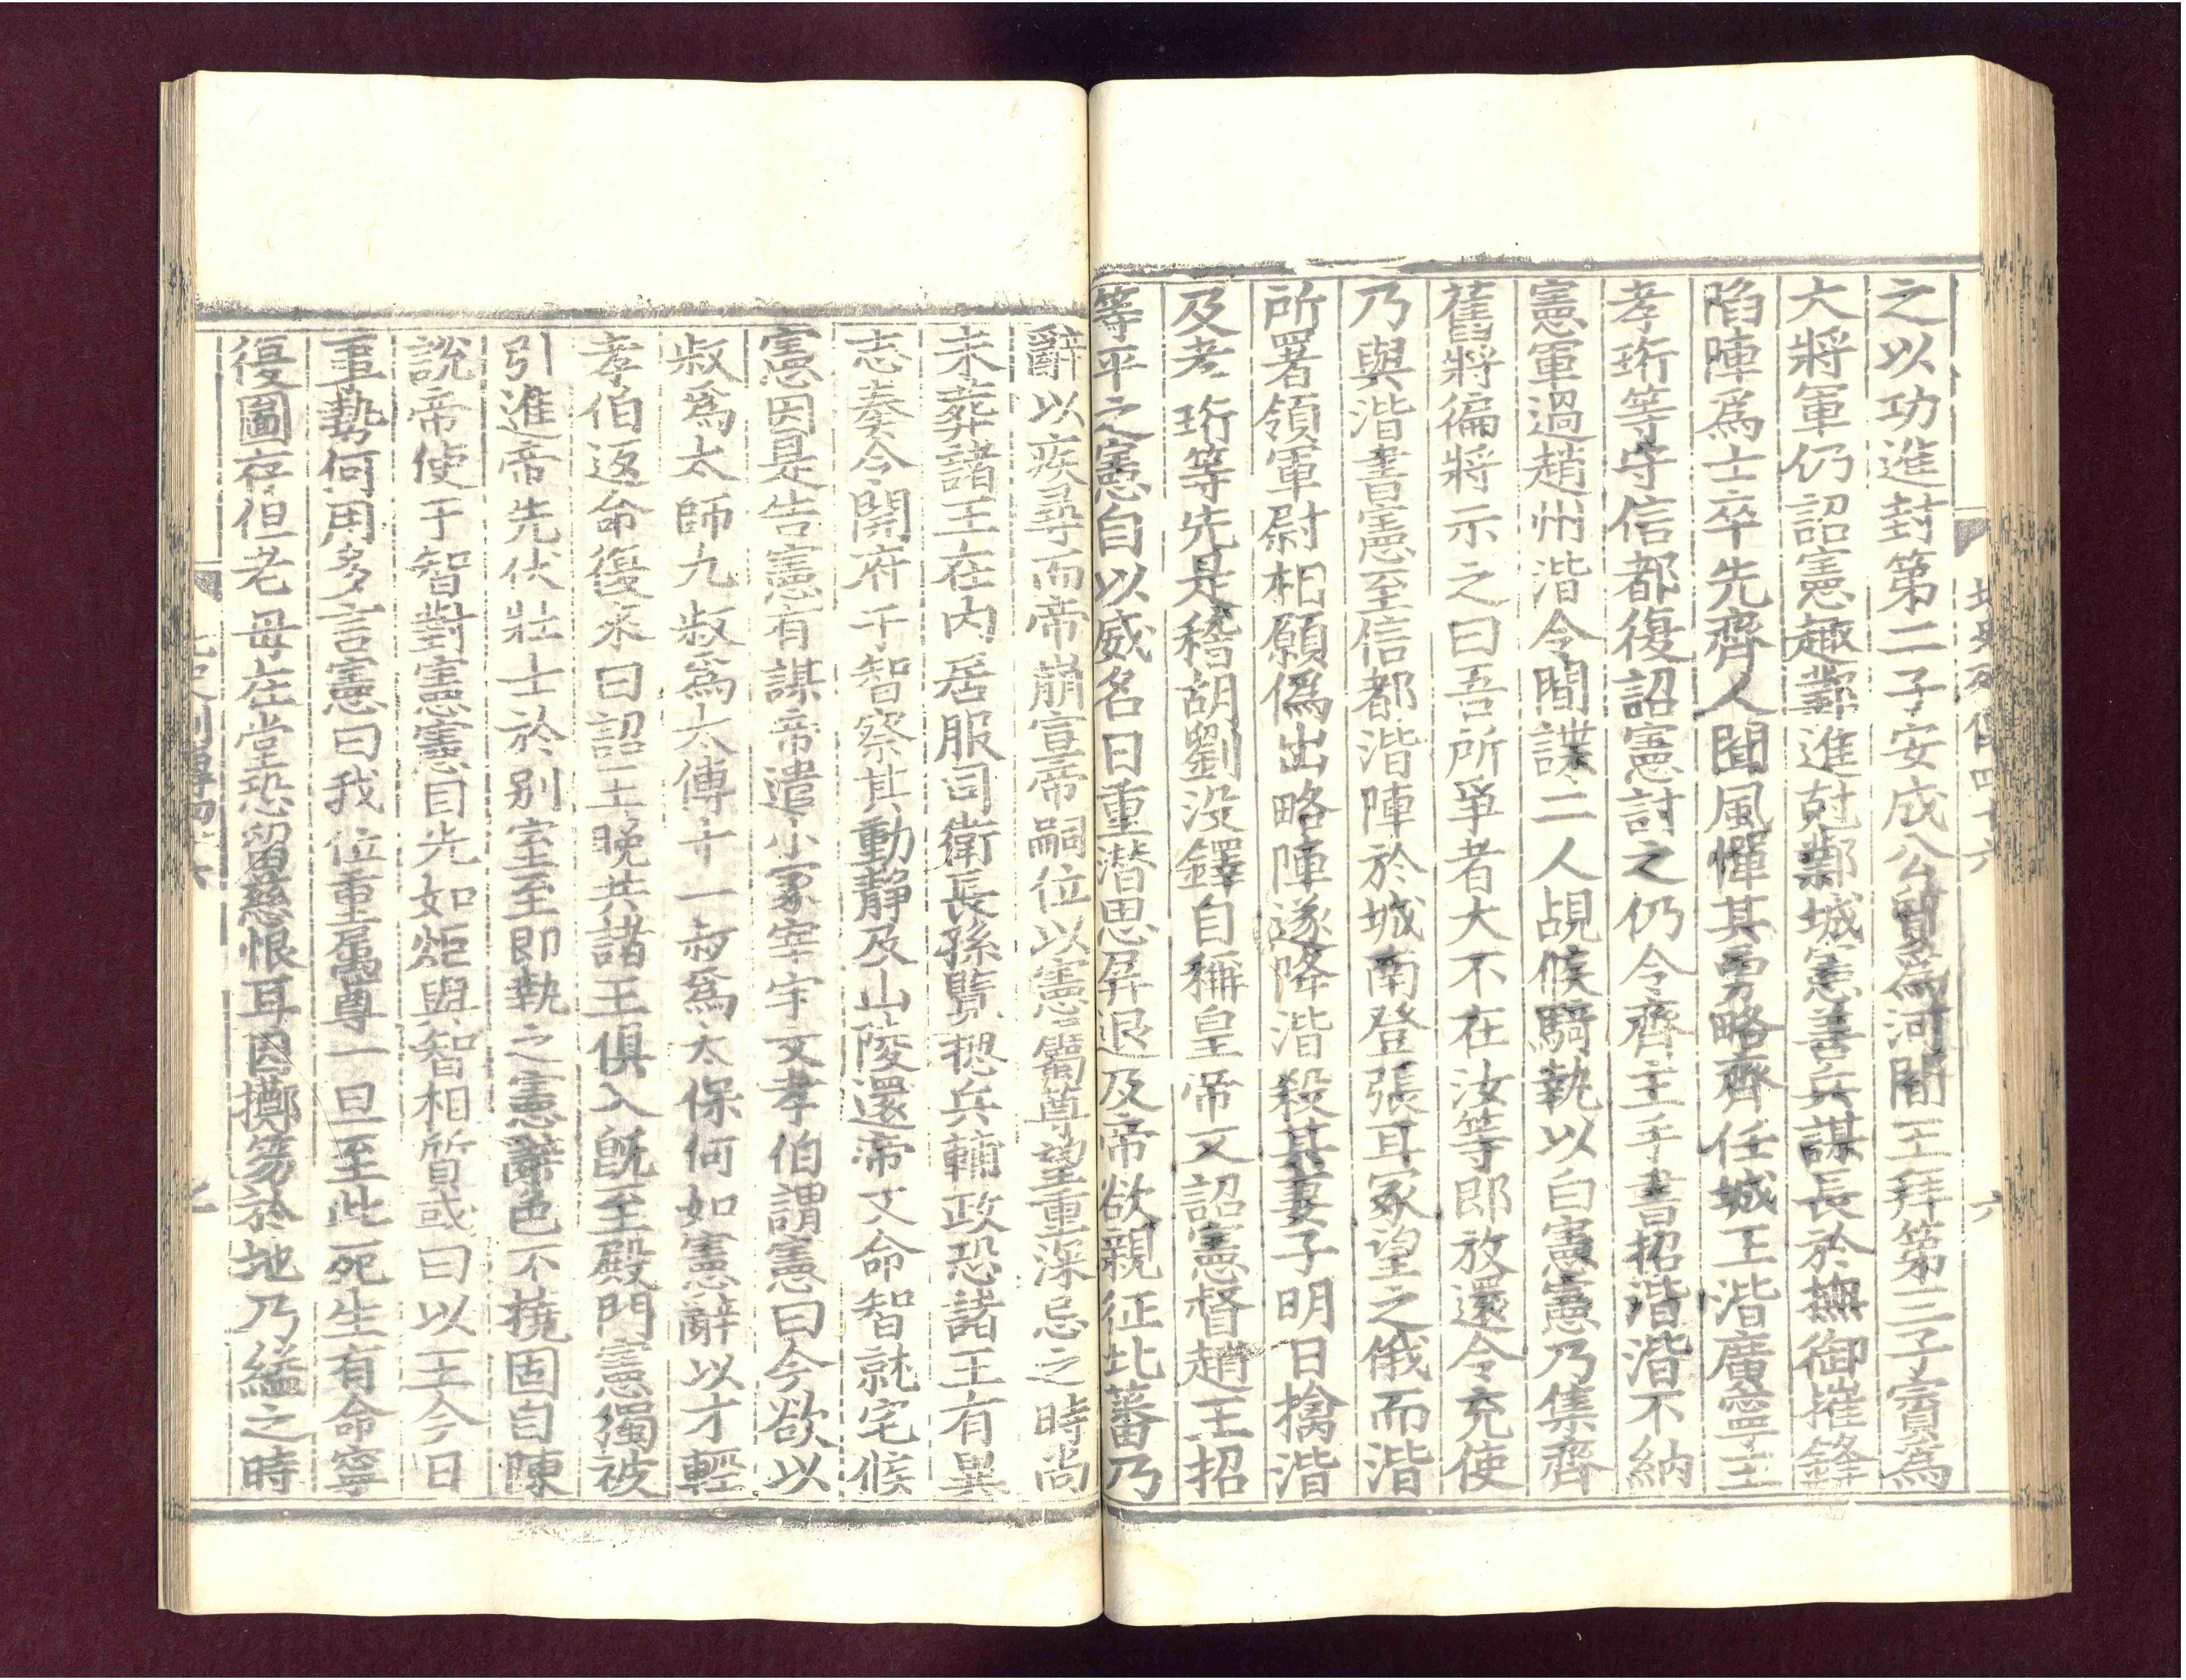 北史列傳四十六　六
之以功進封第二子安成公質爲河間王拜第三子賨爲
大將軍仍詔憲趣鄴進尅鄴城憲善兵謀長於撫御摧鋒
陷陣爲士卒先齊人聞風憚其勇略齊任城王湝廣寧王
孝珩等守信都復詔憲討之仍令齊主手書招湝湝不納
憲軍過趙州湝令間諜二人覘候騎執以白憲憲乃集齊
舊將徧將示之曰吾所爭者大不在汝等郎放還令充使
乃與湝書憲至信都湝陣於城南登張耳冢望之俄而湝
所署領軍尉相願僞出略陣遂降湝殺其妻子明日擒湝
及孝珩等先是稽胡劉没鐸自稱皇帝又詔憲督趙王招
等平之憲自以威名日重潜思屏退及帝欲親征北蕃乃
辭以疾尋而帝崩宣帝嗣位以憲屬尊望重深忌之時尚
未葬諸王在内居服司衛長孫覽揔兵輔政恐諸王有異
志奏令開府于智察其動静及山陵還帝又命智就宅候
憲因是告憲有謀帝遣小冢宰宇文孝伯謂憲曰今欲以
叔爲太師九叔爲太傅十一叔爲太保何如憲辭以才輕
孝伯返命復來曰詔王晚共諸王俱入旣至殿門憲獨被
引進帝先伏壯士於别室至即執之憲辭色不撓固自陳
說帝使于智對憲憲目光如炬與智相質或曰以王今日
事勢何用多言憲曰我位重屬尊一旦至此死生有命寧
復圖存但老母在堂恐留慈恨耳因擲笏於地乃縊之時
北史列傳四十六　七